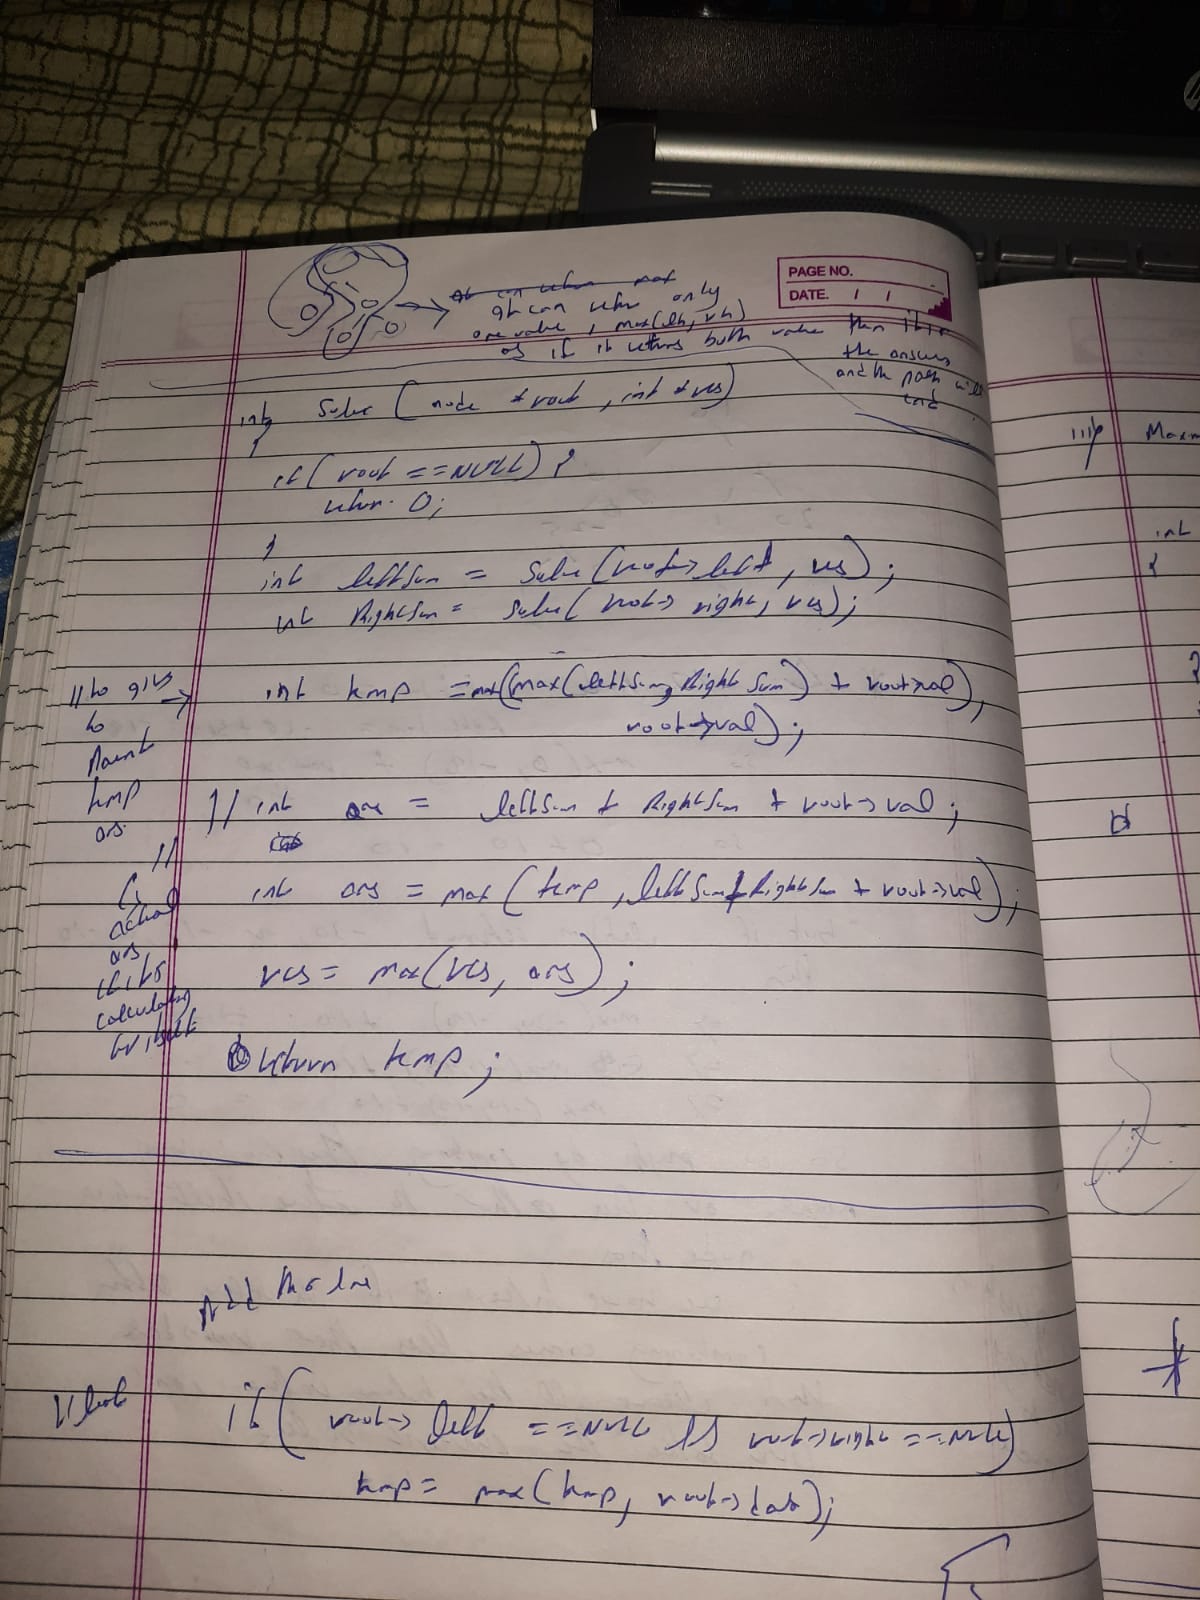 PAGE NO.
DATE. / /
It can return only
one value, max(lh, rh)
as if it returns both value then it is
the answer
and the path will
end
int Solve (node *root, int *res)
{
if (root ==NULL) {
return 0;
}
int leftSum = Solve (root->left, res);
int RightSum = solve( root-> right, res);
//to give ->
to
Parent
tmp
ans
int temp =max((max(leftSum, RightSum) + root->val),
root->val);
// int ans = leftSum + RightSum + root->val;
//
actual
ans
if its
calculating
int ans = max (temp, leftSum+RightSum + root->val);
res = max(res, ans);
return temp;
Add this line
if( root-> left ==NULL && root->right ==NULL)
tmp= max(tmp, root->data);
Maxm
int
{